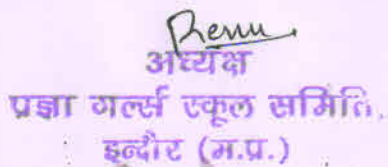 Renu
अध्यक्ष
प्रज्ञा गर्ल्स स्कूल समिति,
इन्दौर (म.प्र.)